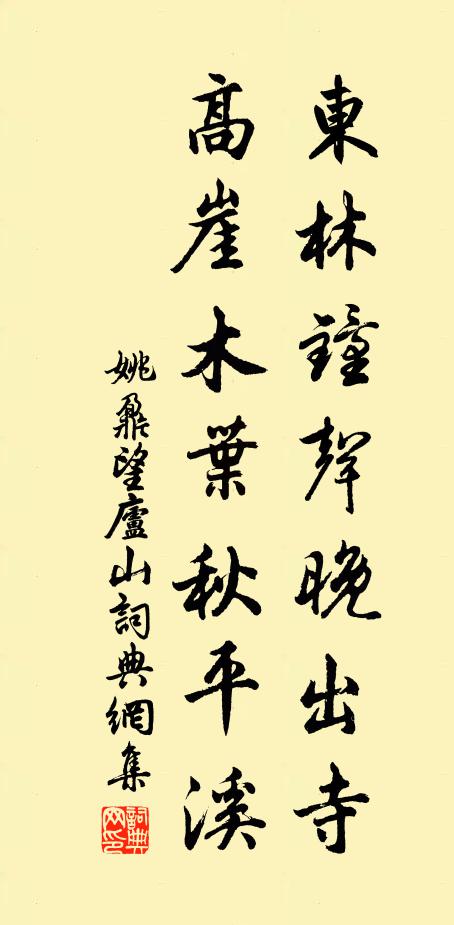 東林鐘聲晚出寺
高崖木葉秋平溪
姚鼐望廬山詞典網集
詞典网印